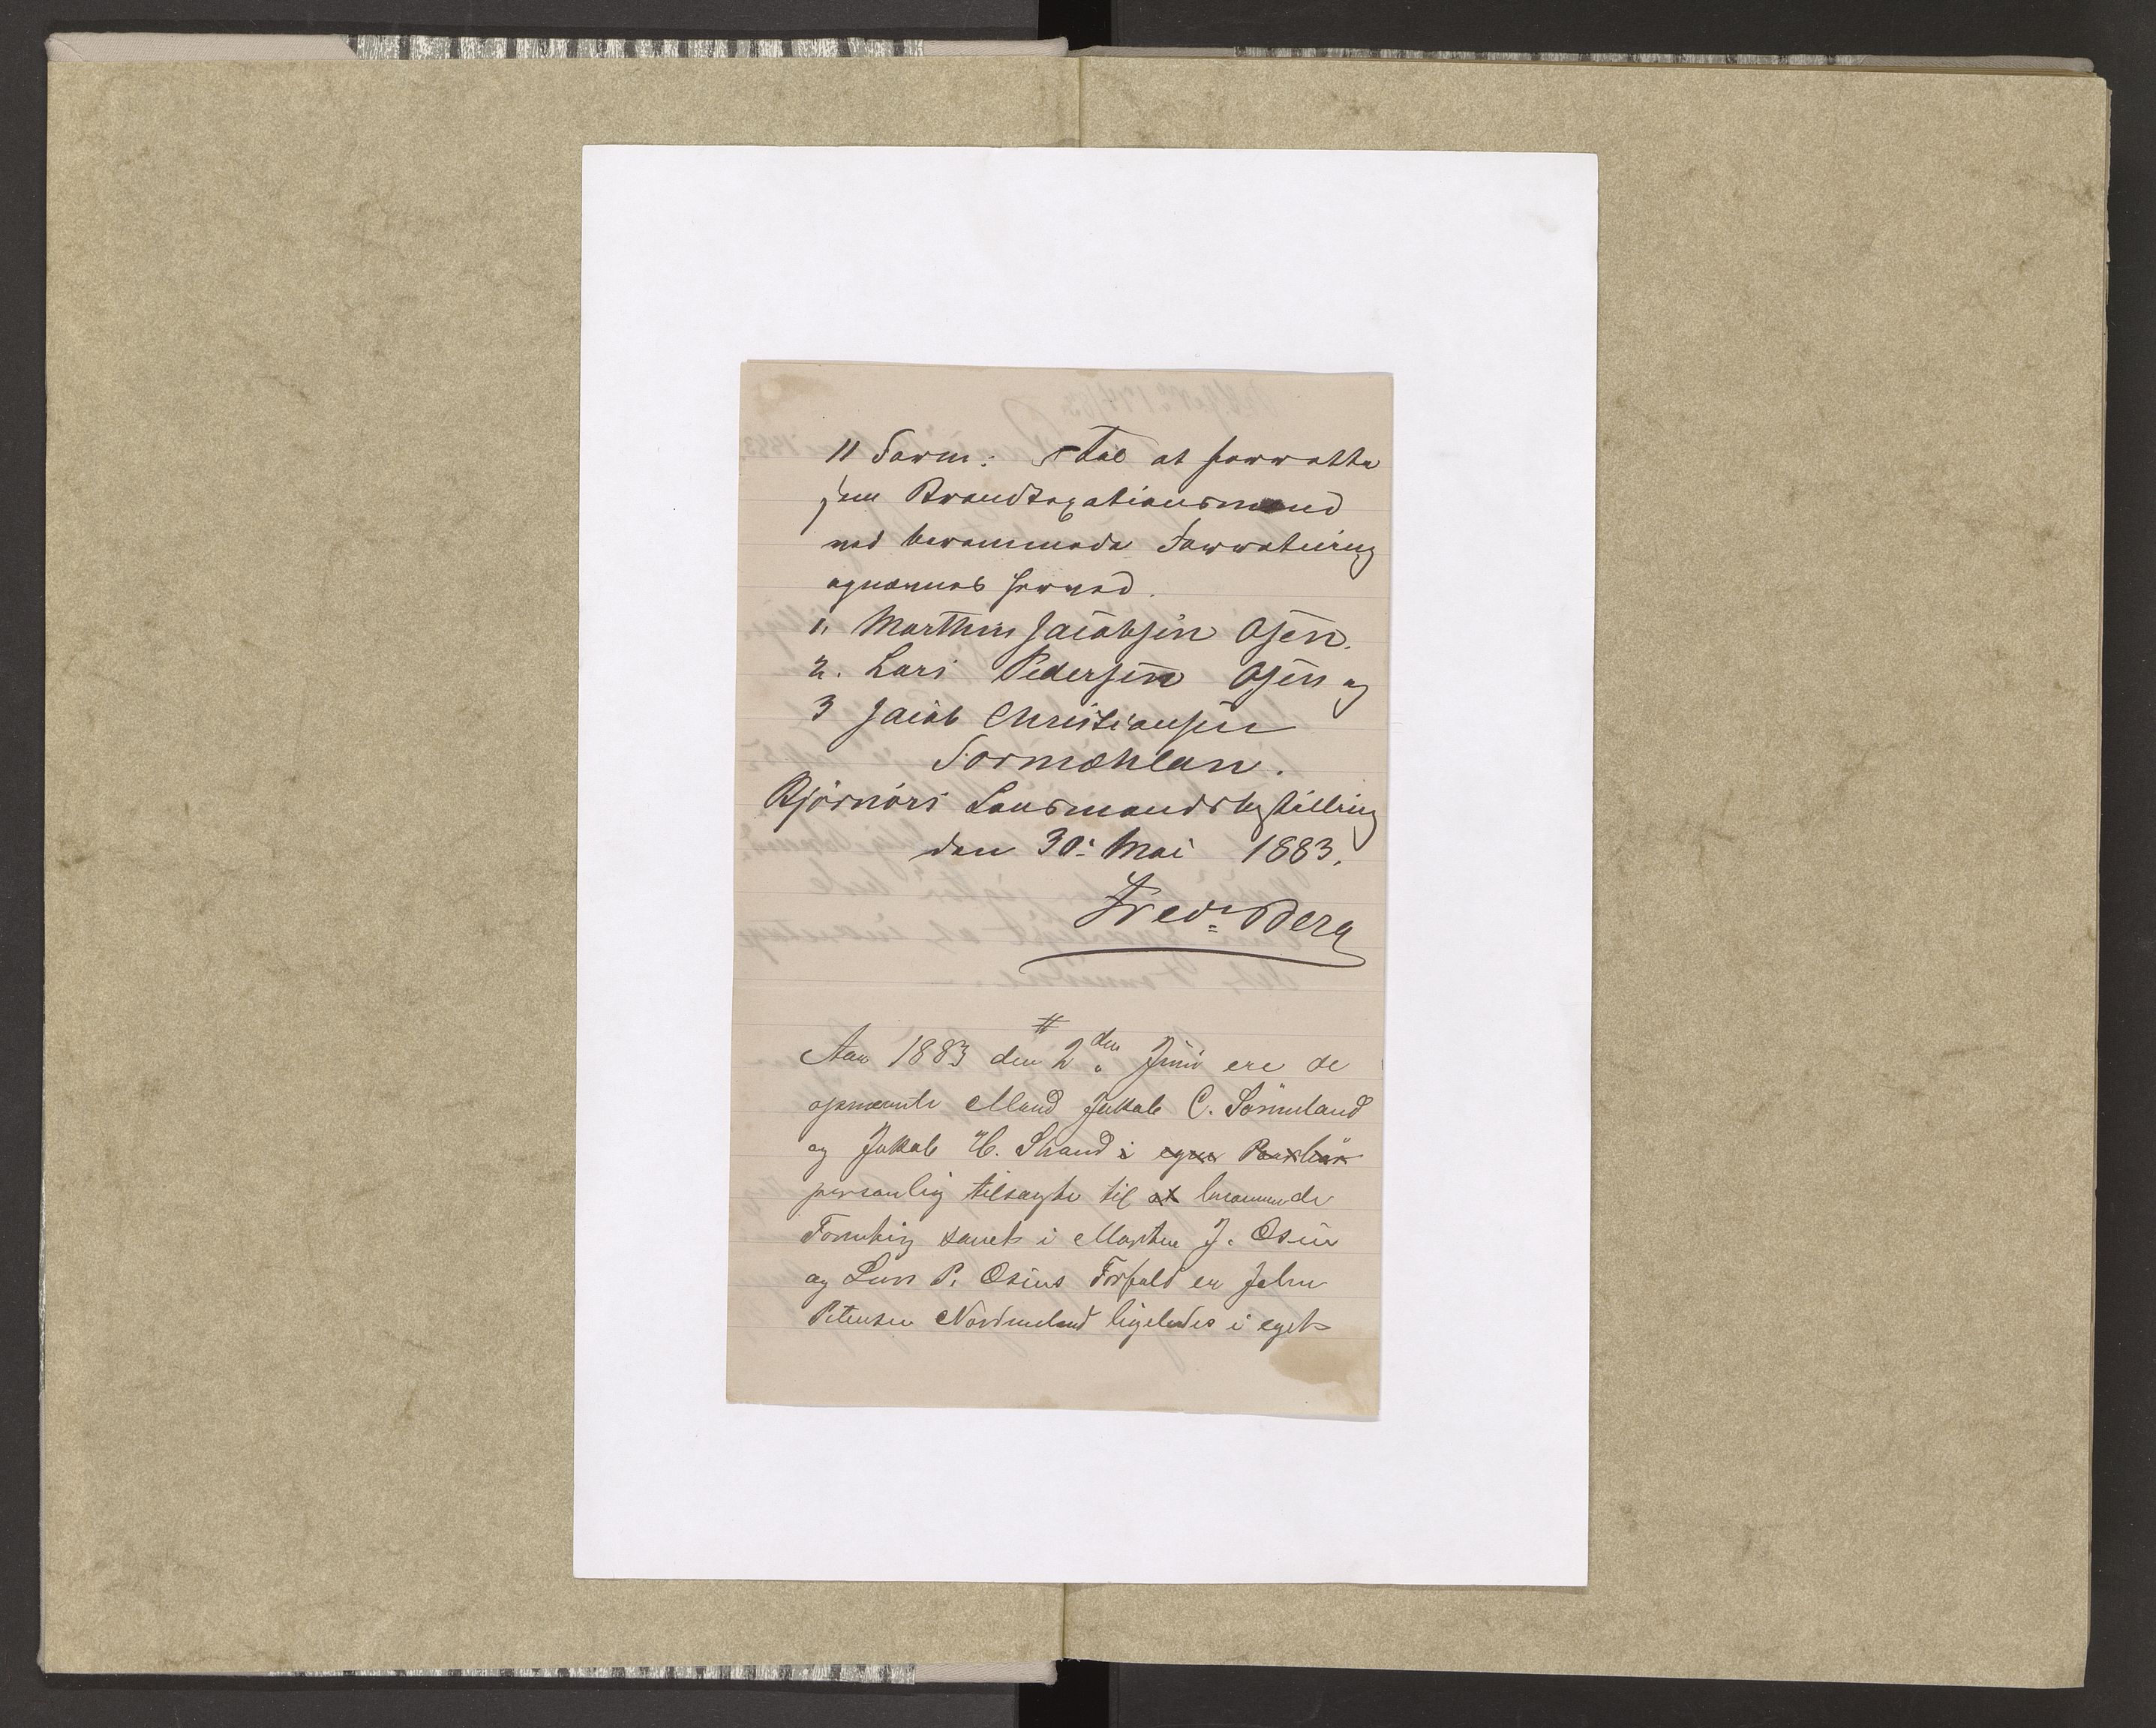 11 Form: Til at forrette
som Brandtaxationsmænd
ved berammede Forretning
opnævnes herved.
1. Marthin Jacobsen Osen.
2. Lars Pedersen Osen og
3 Jacob Christiansen
Sørmæhlan.
Bjørnørs Lensmandsbestilling
den 30: Mai 1883.
Fredr. Berg
#
Aar 1883 den 2den Juni ere de
opnævnte Mænd Jakob C. Sörmeland
og Jakob H. Strand i egne
personlig tilsagte til at berammede
Forretning samt i Marthin J. Osen
og Lars P. Osens Forfald er Johan
Petersen Nordmeland ligeledes i eget